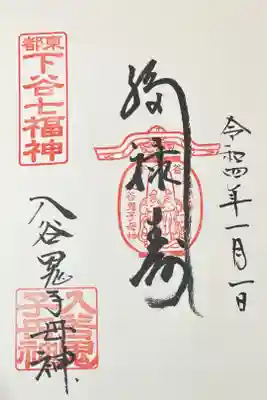 令和四年一月一日
福禄寿
東都
下谷七福神
入谷鬼子母神
入谷鬼
子母神